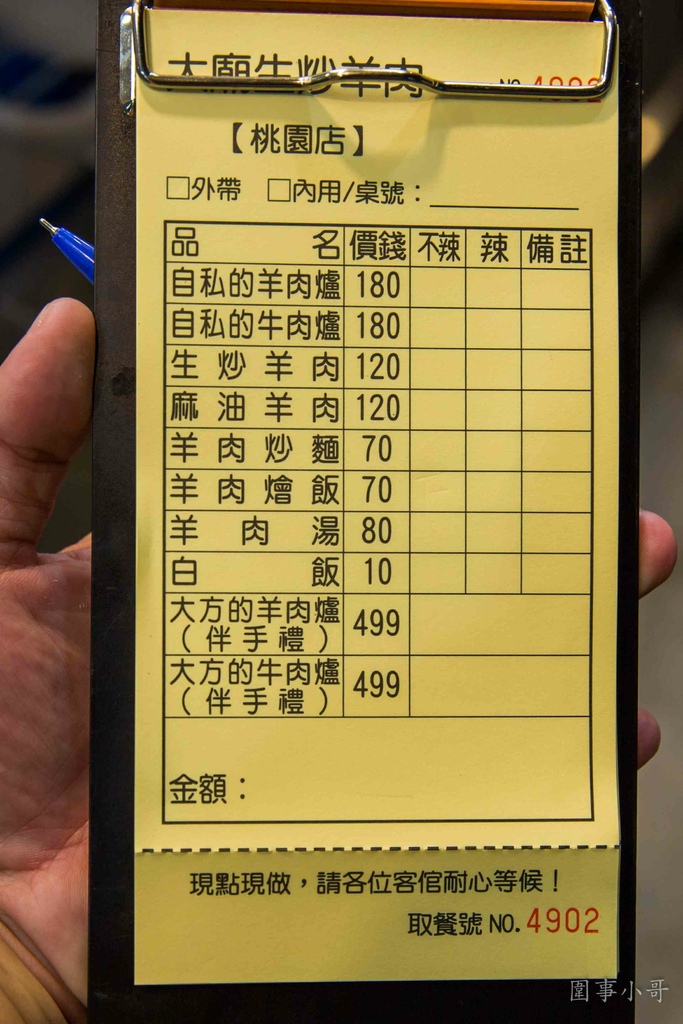 大廟生炒羊肉 NO. 4902
【桃園店】
□外帶 □內用/桌號：
品名 價錢 不辣 辣 備註
自私的羊肉爐 180
自私的牛肉爐 180
生炒羊肉 120
麻油羊肉 120
羊肉炒麵 70
羊肉燴飯 70
羊肉湯 80
白飯 10
大方的羊肉爐 499
(伴手禮)
大方的牛肉爐 499
(伴手禮)
金額：
現點現做，請各位客倌耐心等候！
取餐號 NO. 4902
圍事小哥